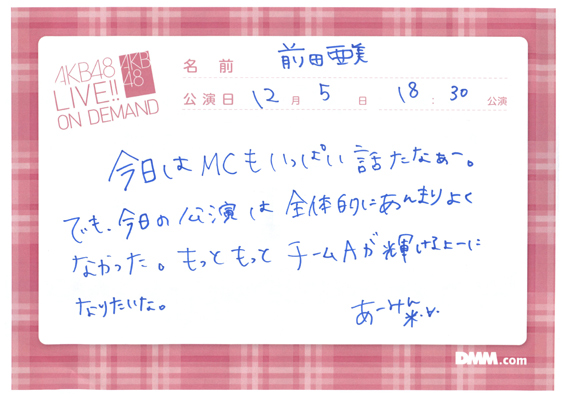 AKB48
LIVE!!
ON DEMAND
AKB
48
名前 前田亜美
公演日 12月5日 18:30公演
今日はMCもいっぱい話たなぁー。
でも、今日の公演は全体的にあんまりよく
なかった。もっともっとチームAが輝けるよーに
なりたいな。
あーみん
DMM.com